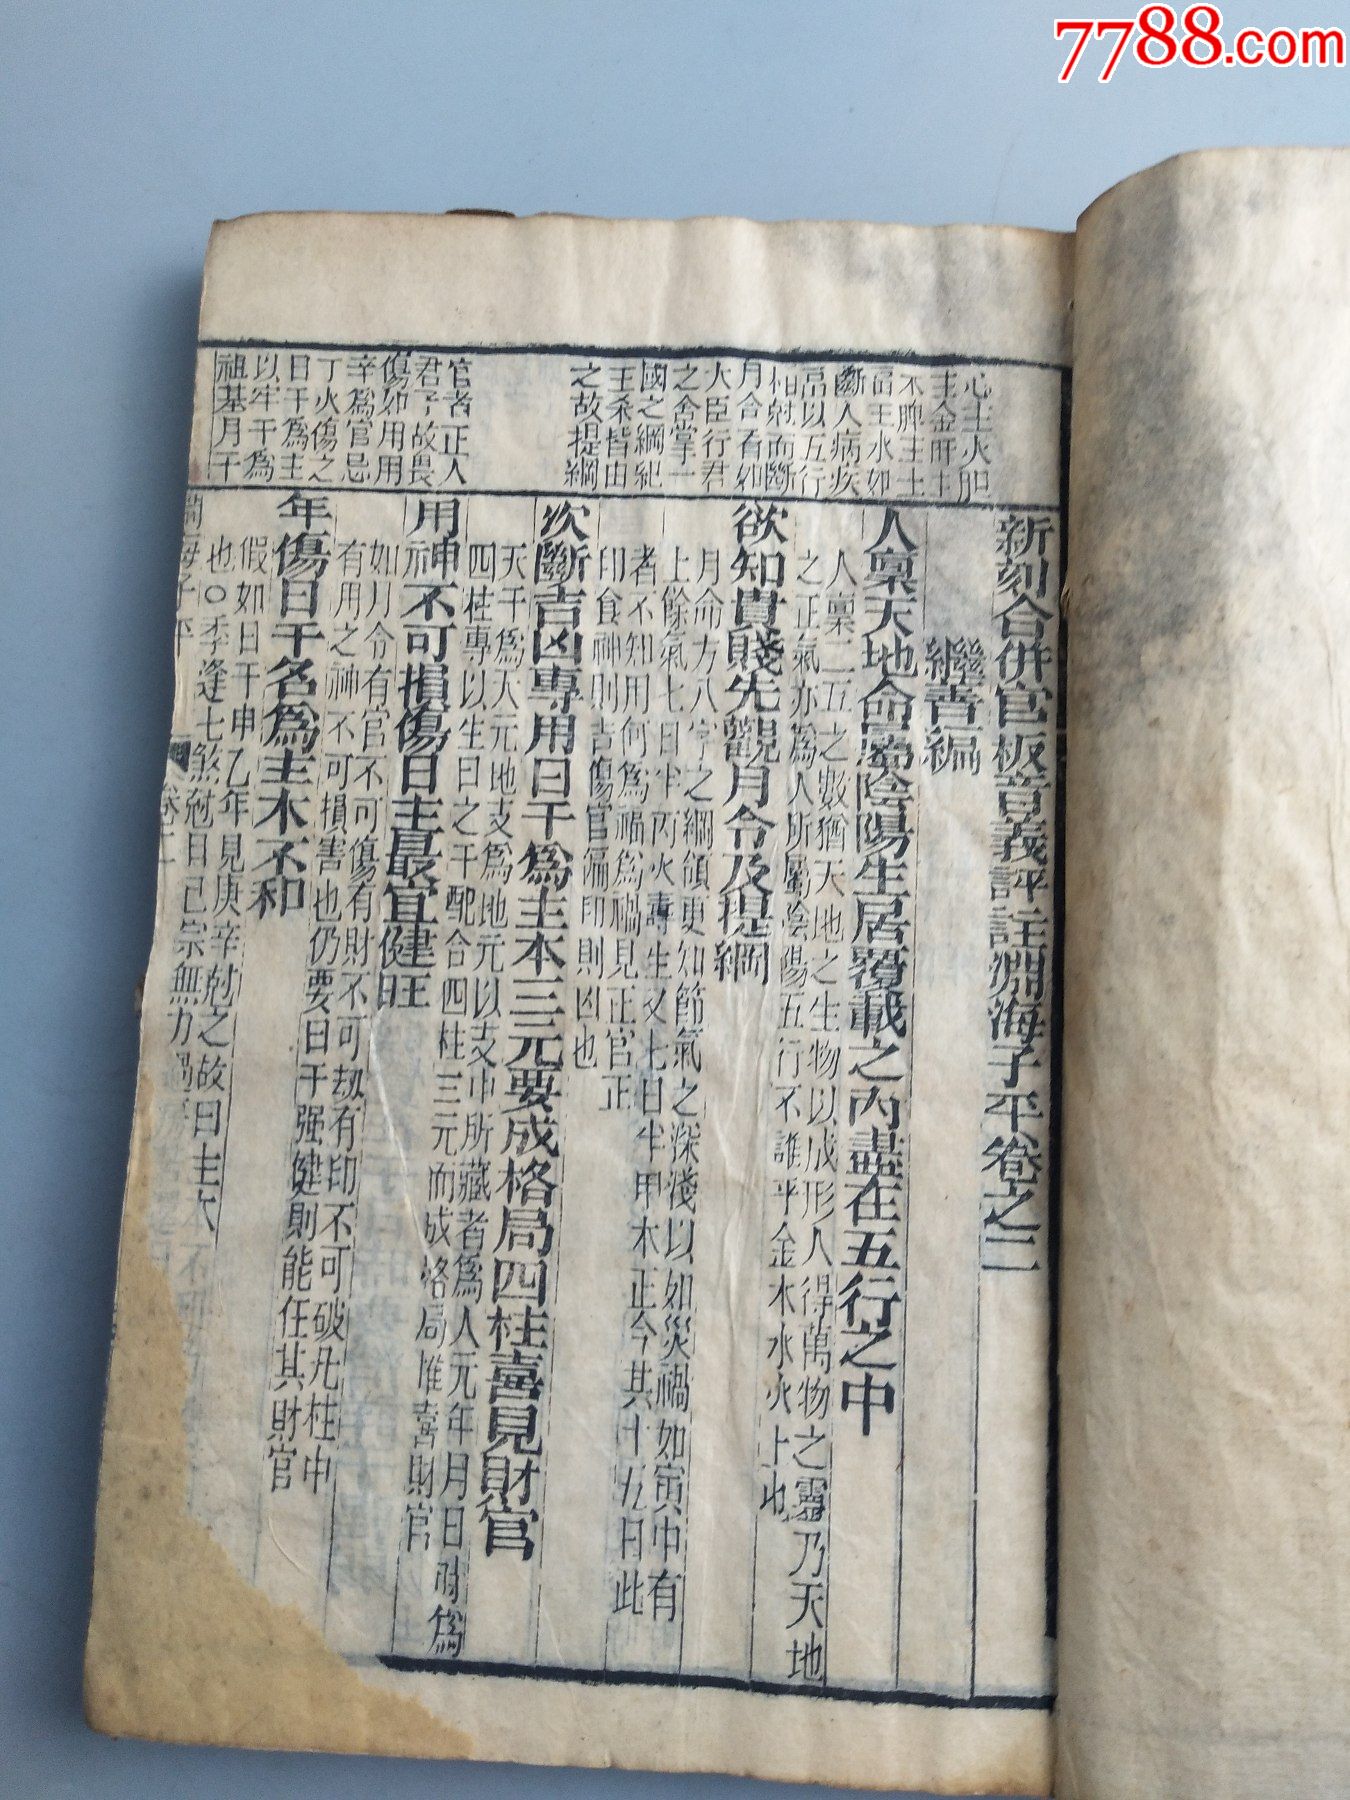 7788.com
新刻合併官板音義評註淵海子平卷之二
繼善編
人稟天地命屬陰陽生居覆載之內盡在五行之中
人稟二五之數猶天地之生物以成形人得萬物之靈乃天地
之正氣亦為人所屬陰陽五行不離乎金木水火土也
欲知貴賤先觀月令及提綱
月命方八字之綱領更知節氣之深淺以如災禍如寅中有
上餘氣七日半丙火壽生又七日半甲木正令其十五日此
者不知用何為福為禍見正官正
印食神則吉傷官偏印則凶也
次斷吉凶專用日干為主本三元要成格局四柱喜見財官
天干為天元地支為地元以支中所藏者為人元年月日時為
四柱專以生日之干配合四柱三元而成格局惟喜財官
用神不可損傷日主最宜健旺
如月令有官不可傷有財不可劫有印不可破凡柱中
有用之神不可損害也仍要日干强健則能任其財官
年傷日干名為主木不和
假如日干甲乙年見庚辛尅之故曰主木
也〇季逢七煞尅日己宗無力
海子平
卷二
心主火胆
主金肝主
木脾主土
腎主水如
斷人病疾
當以五行
相尅而斷
月令者如
大臣行君
之令掌一
國之綱紀
王桑皆由
之故提綱
官者正人
君子故畏
傷如用用
辛為官忌
丁火傷之
日干為主
以年干為
祖基月干